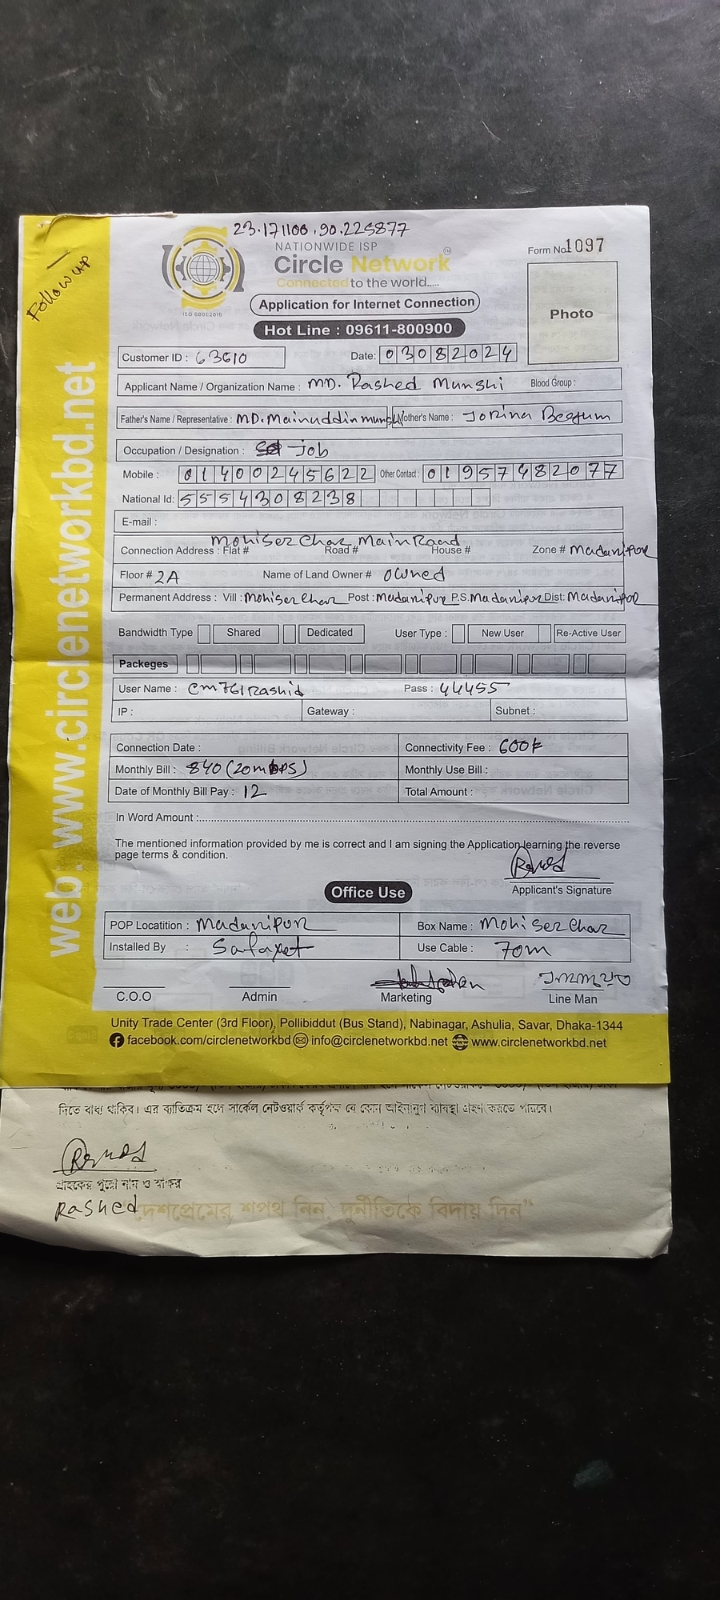 23.171100,90.225877
Follow up
NATIONWIDE ISP
Circle Network
Connected to the world.....
ISO 9001:2015
Form No 1097
Application for Internet Connection
Photo
Hot Line : 09611-800900
Customer ID : 63610 Date: 03082024
Applicant Name / Organization Name : MD. Rashed Munshi Blood Group :
Father's Name / Representative : MD. Mainuddin munshi Mother's Name : Jorina Beegum
Occupation / Designation : Job
Mobile : 01400245622 Other Contact : 01957482077
National Id: 5554308238
E-mail :
MohiSer Char Main Road
Connection Address : Flat # Road # House # Zone # Madaripor
Floor # 2A Name of Land Owner # owned
Permanent Address : Vill : MohiSer Char Post : Madaripur P.S. Madaripur Dist: Madaripor
Bandwidth Type Shared Dedicated User Type : New User Re-Active User
Packeges
User Name : cm761Rashid Pass : 44455
IP : Gateway : Subnet :
Connection Date : Connectivity Fee : 600৳
Monthly Bill : 840 (20mbps) Monthly Use Bill :
Date of Monthly Bill Pay : 12 Total Amount :
In Word Amount :
The mentioned information provided by me is correct and I am signing the Application learning the reverse
page terms & condition.
Applicant's Signature
Office Use
POP Locatition : Madaripur Box Name : Mohiser Char
Installed By : Safayet Use Cable : 70m
C.O.O Admin Marketing Line Man
Unity Trade Center (3rd Floor), Pollibiddut (Bus Stand), Nabinagar, Ashulia, Savar, Dhaka-1344
facebook.com/circlenetworkbd info@circlenetworkbd.net www.circlenetworkbd.net
web . www.circlenetworkbd.net
দিতে বাধ্য থাকিব। এর ব্যতিক্রম হলে সার্কেল নেটওয়ার্ক কর্তৃপক্ষ যে কোন আইনানুগ ব্যবস্থা গ্রহণ করতে পারবে।
গ্রাহকের পুরো নাম ও স্বাক্ষর
Rashed
দেশপ্রেমের শপথ নিন, দুর্নীতিকে বিদায় দিন"